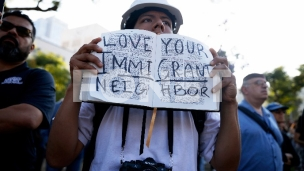 LOVE YOUR
IMMIGRANT
NEIGHBOR